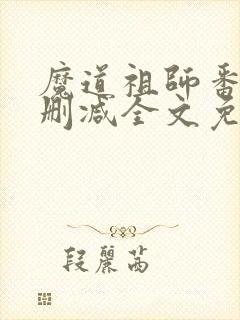 魔道祖師番
删减全文免
段麗茜